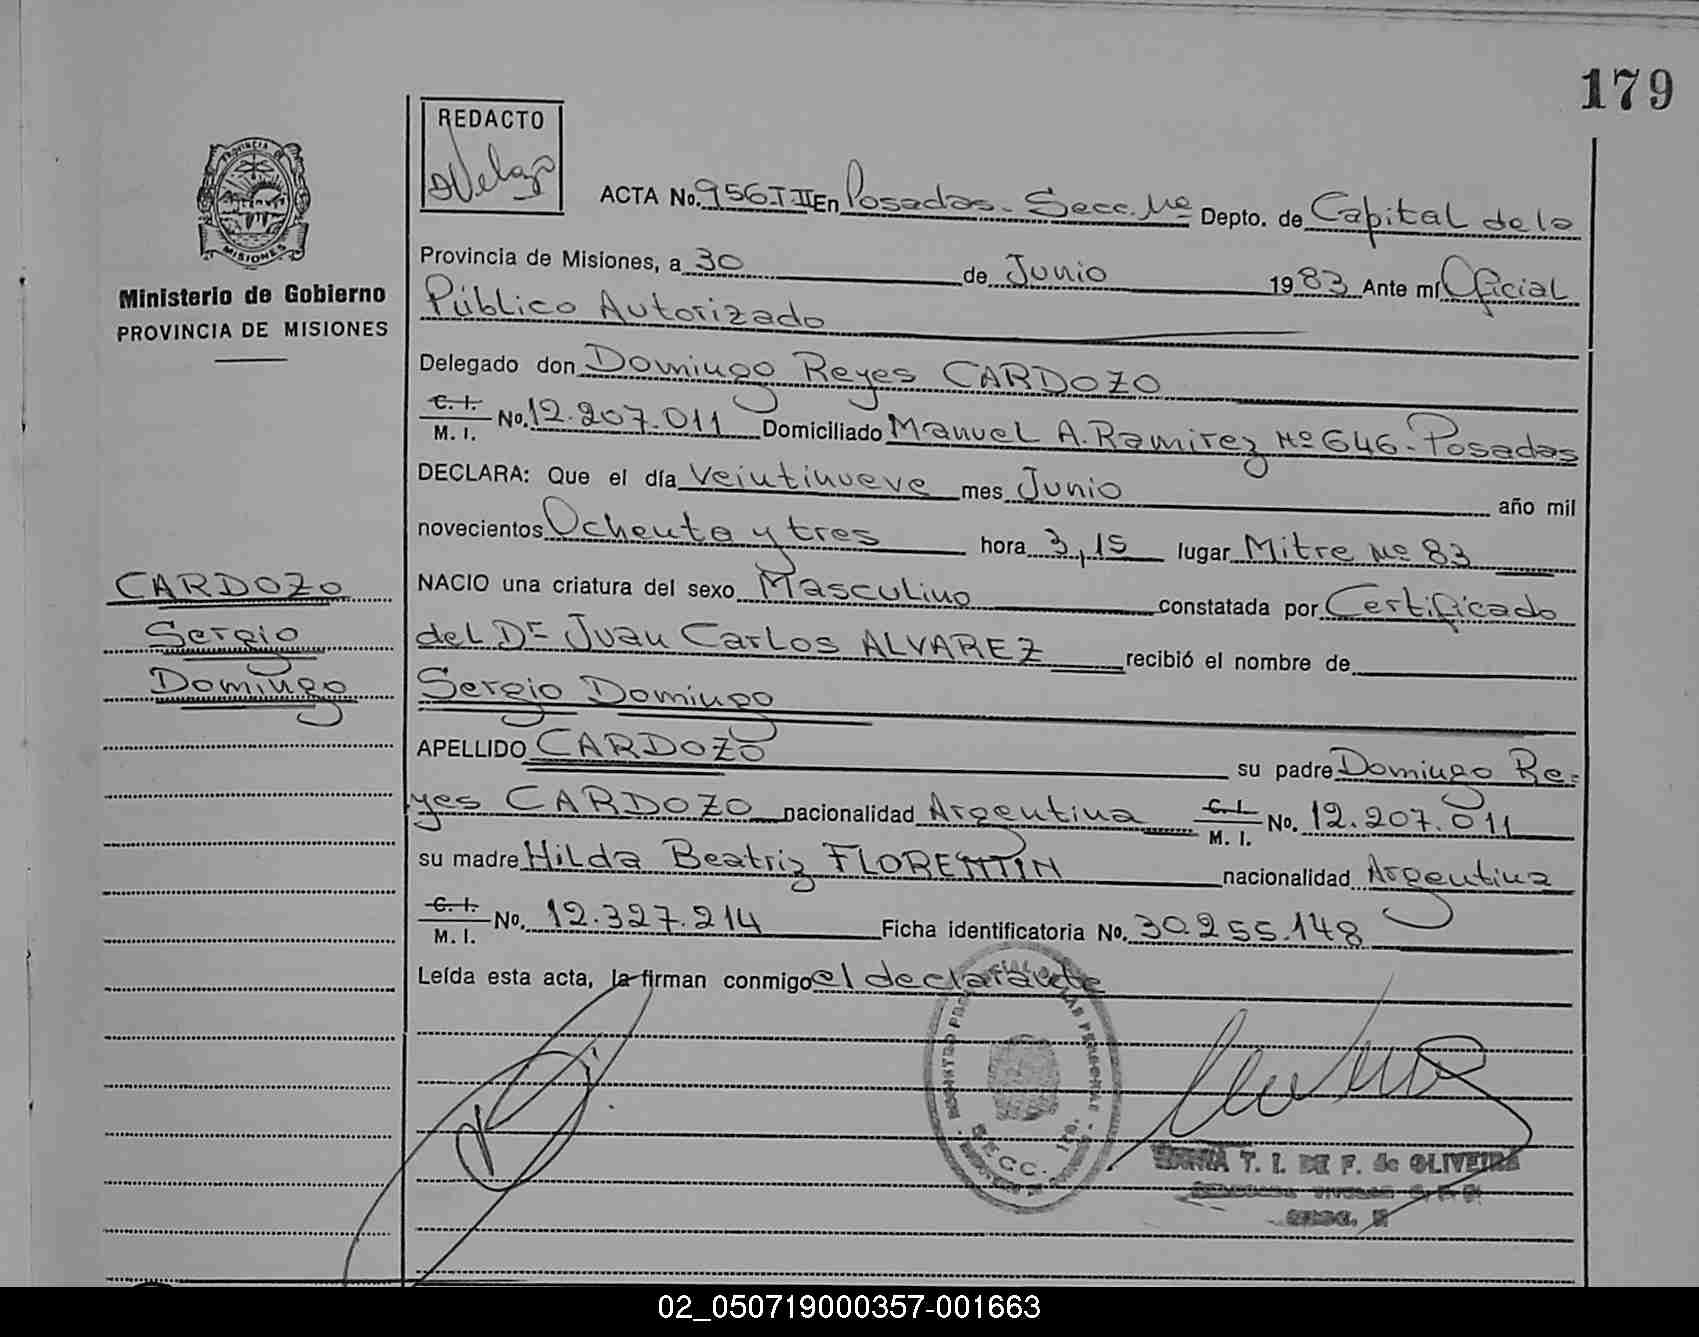 179
REDACTO
ACTA No. 956 T-II En Posadas - Secc. 1ra Depto. de Capital de la
Provincia de Misiones, a 30 de Junio 1983 Ante mí Oficial
Público Autorizado
Ministerio de Gobierno
PROVINCIA DE MISIONES
Delegado don Domingo Reyes CARDOZO
C. I. M. I. No. 12.207.011 Domiciliado Manuel A. Ramirez Nº 646 - Posadas
DECLARA: Que el día Veintinueve mes Junio año mil
novecientos Ochenta y tres hora 3,15 lugar Mitre Nº 83
CARDOZO
Sergio
Domingo
NACIO una criatura del sexo Masculino constatada por Certificado
del Dr Juan Carlos ALVAREZ recibió el nombre de
Sergio Domingo
APELLIDO CARDOZO su padre Domingo Re=
yes CARDOZO nacionalidad Argentina C. I. M. I. No. 12.207.011
su madre Hilda Beatriz FLORENTIN nacionalidad Argentina
C. I. M. I. No. 12.327.214 Ficha identificatoria No. 30.255.148
Leída esta acta, la firman conmigo el declarante
SECC. 1ra.
T. I. DE F. de OLIVEIRA
02_050719000357-001663